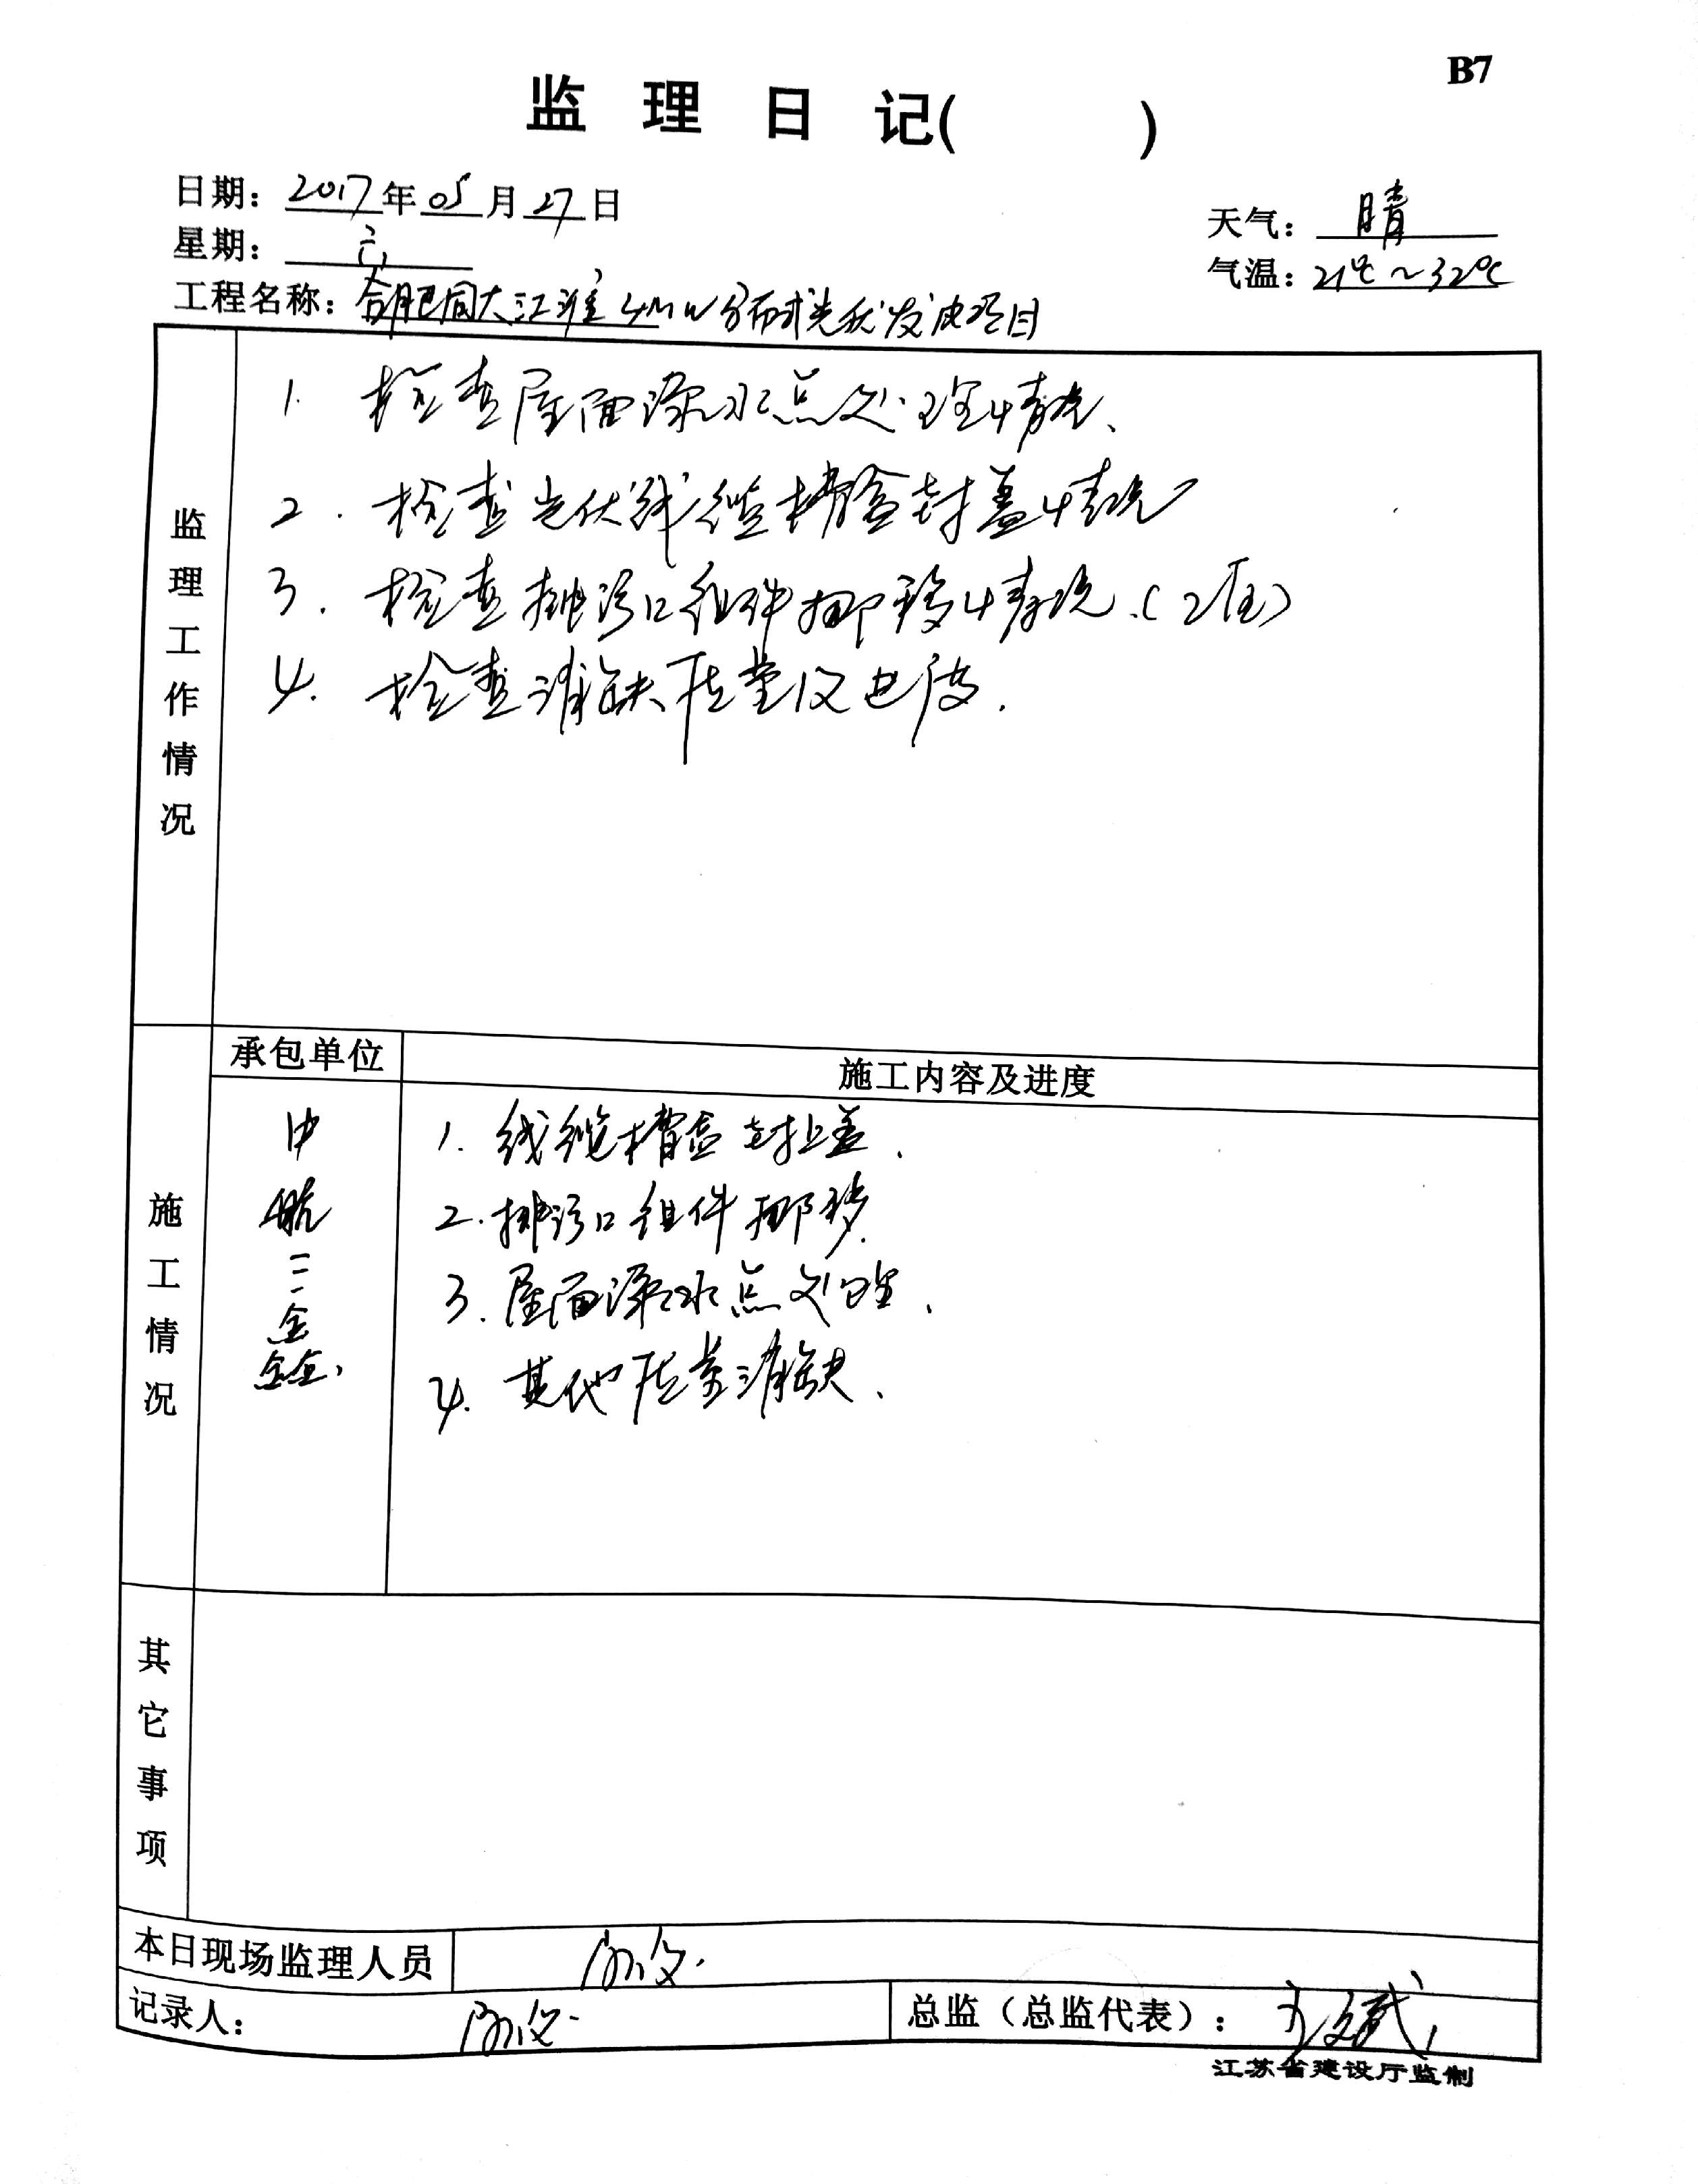 B7
监 理 日 记( )
日期：2017年05月27日
天气：晴
星期：六
气温：21℃～32℃
工程名称：合肥同大江淮4MW分布式光伏发电项目
监理工作情况
1. 检查屋面漏水点处理情况、
2. 检查光伏线缆槽盒封盖情况
3. 检查排污口组件挪移情况.(2库)
4. 检查消缺质量及进度.
承包单位
施工内容及进度
施工情况
中航三鑫、
1. 线缆槽盒封盖.
2. 排污口组件挪移.
3. 屋面漏水点处理.
4. 其他质量消缺、
其它事项
本日现场监理人员
记录人：
总监（总监代表）：
江苏省建设厅监制